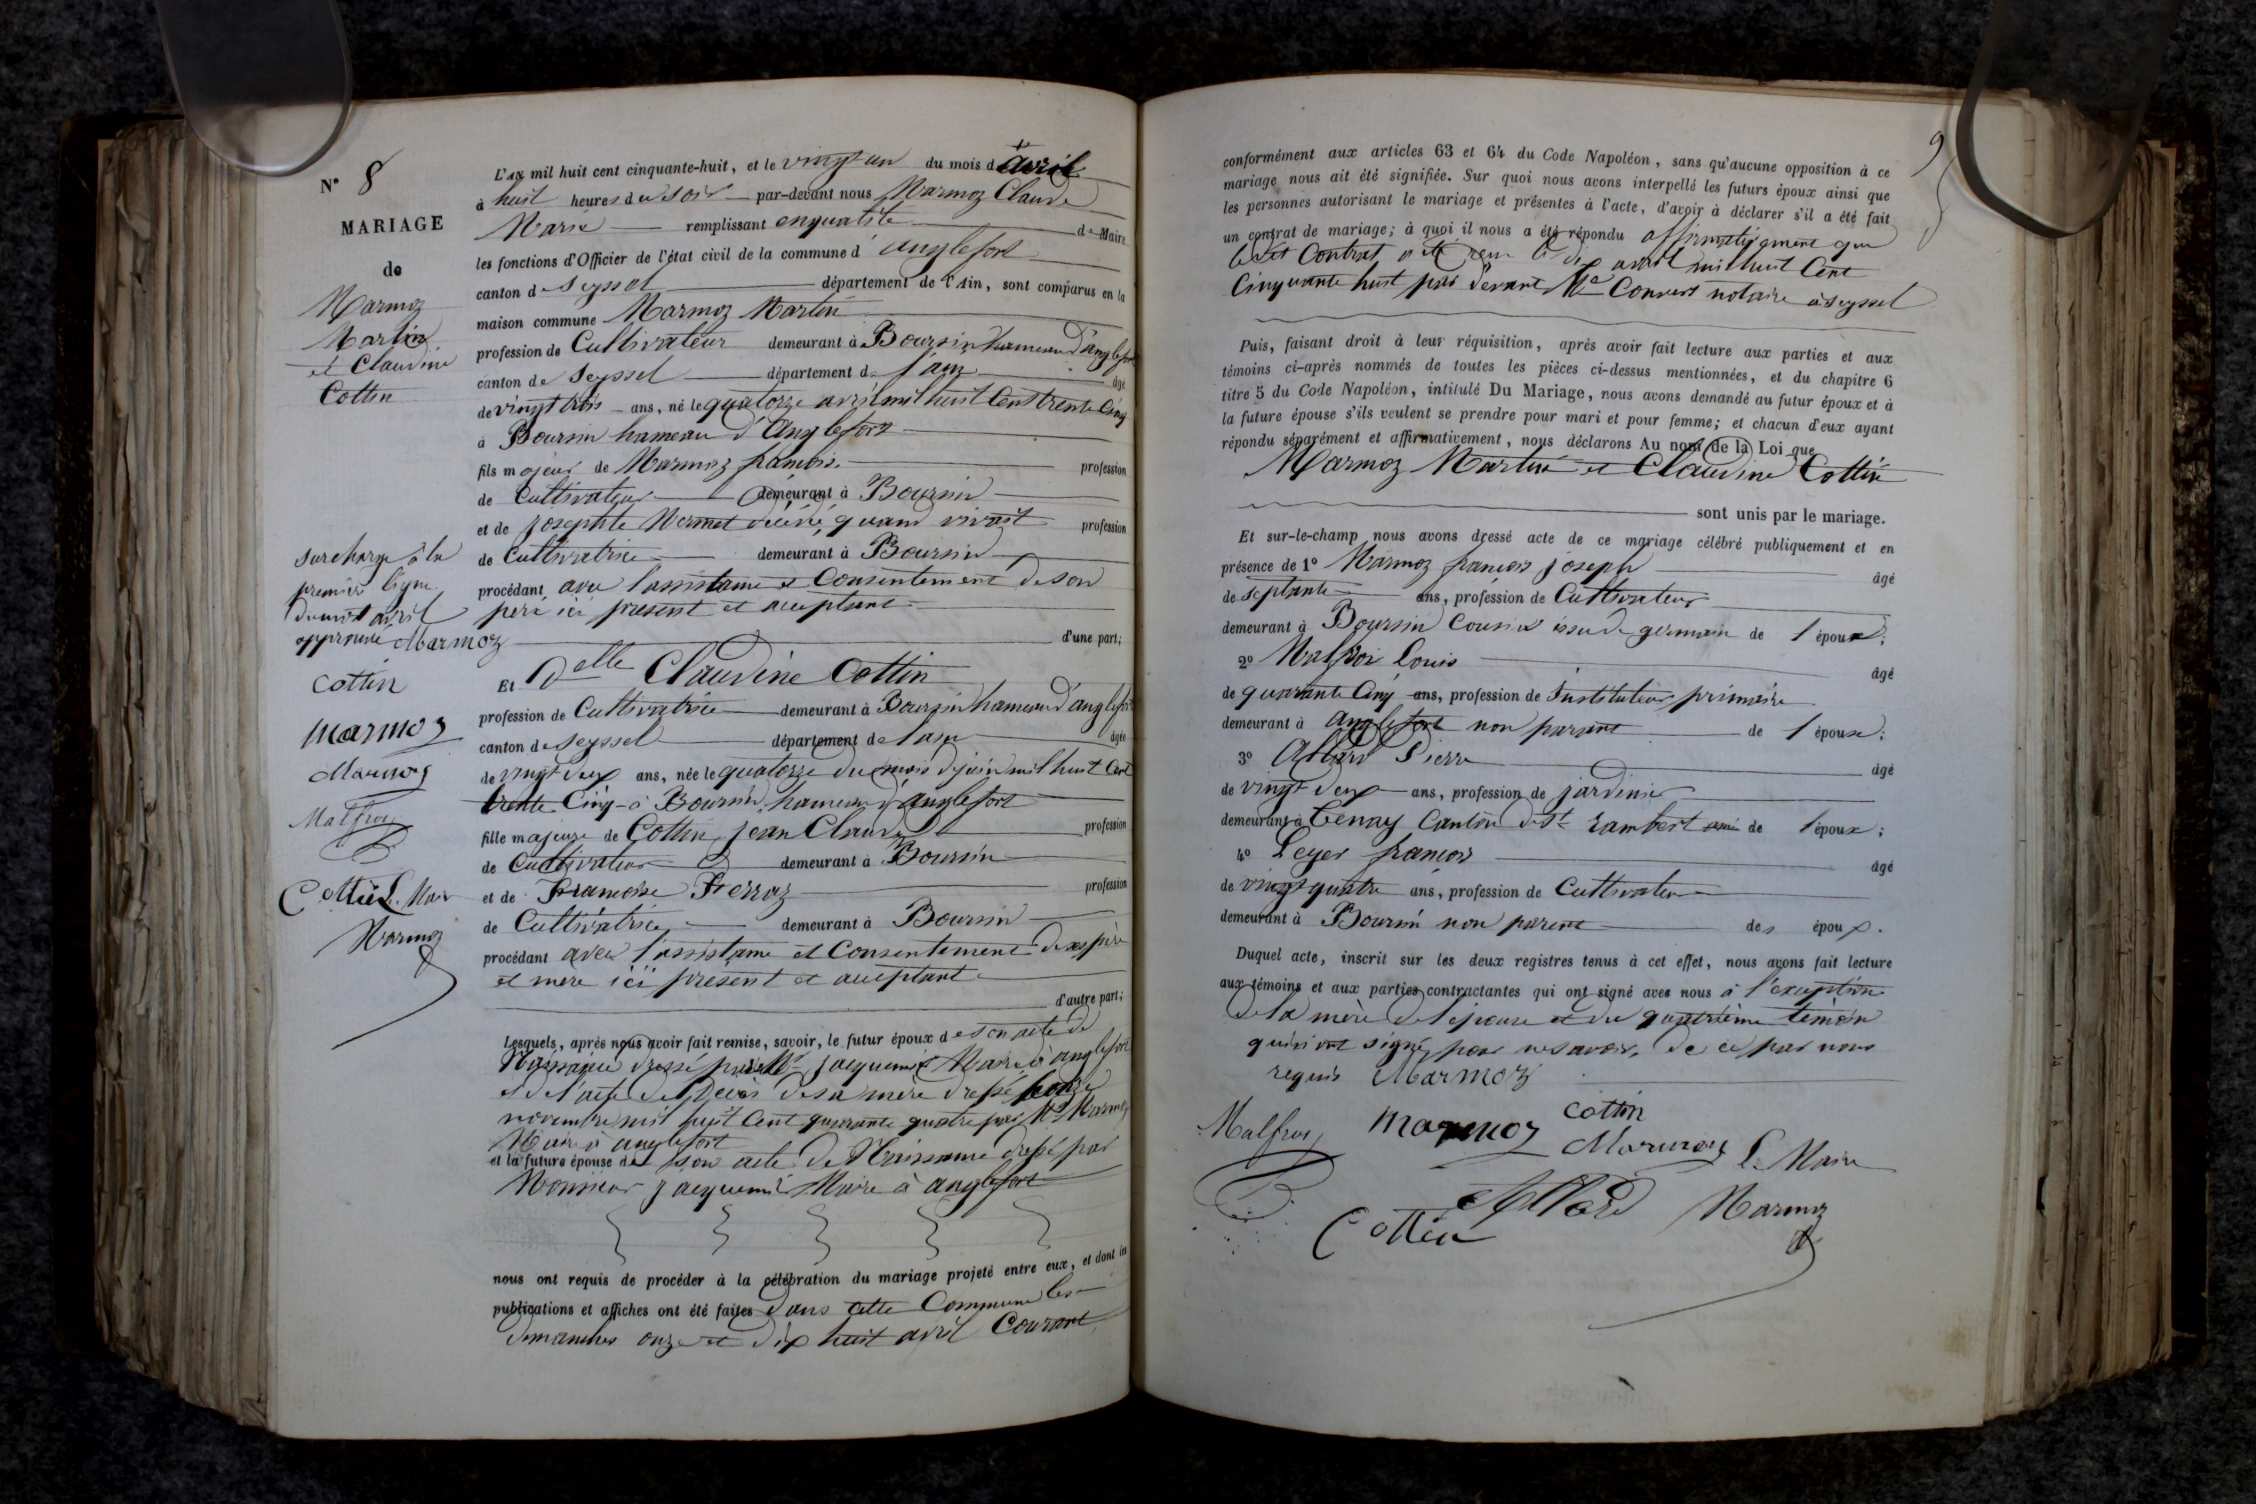 N° 8
MARIAGE
de
Marmoz
Martin
et Claudine
Cottin
surcharge à la
première ligne
du mot avril
approuvé Marmoz
Cottin
Marmoz
Marmoz
Malfroy
Cottin Le Maire
Marmoz
L'an mil huit cent cinquante-huit, et le vingt un du mois d avril
à huit heures du soir par-devant nous Marmoz Claude
Marie remplissant en qualité de Maire
les fonctions d'Officier de l'état civil de la commune d' anglefort
canton de Seyssel département de l'Ain, sont comparus en la
maison commune Marmoz Martin
profession de Cultivateur demeurant à Boursin hameau d'anglefort
canton de Seyssel département de l'ain âgé
de vingt trois ans, né le quatorze avril mil huit Cent trente Cinq
à Boursin hameau d'Anglefort
fils majeur de Marmoz françois profession
de Cultivateur demeurant à Boursin
et de josephte Mermet décédé, quand vivait profession
de Cultivatrice demeurant à Boursin
procédant avec l'assistance et Consentement de son
père ici présent et acceptant
d'une part;
Et Delle Claudine Cottin
profession de Cultivatrice demeurant à Boursin hameau d'anglefort
canton de Seyssel département de l'ain âgée
de vingt deux ans, née le quatorze du mois de juin mil huit Cent
trente Cinq à Boursin, hameau d'Anglefort
fille majeure de Cottin jean Claude profession
de Cultivateur demeurant à Boursin
et de Françoise Ferraz profession
de Cultivatrice demeurant à Boursin
procédant avec l'assistance et Consentement de ses père
et mère ici présent et acceptant
d'autre part;
Lesquels, après nous avoir fait remise, savoir, le futur époux de son acte de
Naissance dressé par Mr jacquemet Maire à anglefort
et de l'acte de Décès de sa mère dressé
novembre mil huit Cent quarante quatre par Mr Marmoz
Maire à anglefort
et la future épouse de son acte de Naissance dressé par
Monsieur jacquemet Maire à anglefort
nous ont requis de procéder à la célébration du mariage projeté entre eux, et dont les
publications et affiches ont été faites dans cette Commune les
dimanches onze et dix huit avril Courant
9
conformément aux articles 63 et 64 du Code Napoléon, sans qu'aucune opposition à ce
mariage nous ait été signifiée. Sur quoi nous avons interpellé les futurs époux ainsi que
les personnes autorisant le mariage et présentes à l'acte, d'avoir à déclarer s'il a été fait
un contrat de mariage; à quoi il nous a été répondu affirmativement que
le dit Contrat a été reçu le dix avril mil huit Cent
Cinquante huit par devant Me Convert notaire à Seyssel
Puis, faisant droit à leur réquisition, après avoir fait lecture aux parties et aux
témoins ci-après nommés de toutes les pièces ci-dessus mentionnées, et du chapitre 6
titre 5 du Code Napoléon, intitulé Du Mariage, nous avons demandé au futur époux et à
la future épouse s'ils veulent se prendre pour mari et pour femme; et chacun d'eux ayant
répondu séparément et affirmativement, nous déclarons Au nom de la Loi que
Marmoz Martin et Claudine Cottin
sont unis par le mariage.
Et sur-le-champ nous avons dressé acte de ce mariage célébré publiquement et en
présence de 1° Marmoz françois joseph âgé
de septante ans, profession de Cultivateur
demeurant à Boursin Cousin issu de germain de l'époux;
2° Malfroi Louis âgé
de quarante Cinq ans, profession de Instituteur primaire
demeurant à anglefort non parent de l'époux;
3° Allard Pierre âgé
de vingt deux ans, profession de jardinier
demeurant à Tenay Canton de St Rambert ami de l'époux;
4° Leyer françois âgé
de vingt quatre ans, profession de Cultivateur
demeurant à Boursin non parent des époux.
Duquel acte, inscrit sur les deux registres tenus à cet effet, nous avons fait lecture
aux témoins et aux parties contractantes qui ont signé avec nous à l'exception
de la mère de l'épouse et du quatrième témoin
qui n'ont signé pour ne savoir, de ce par nous
requis Marmoz
Malfroy Marmoz Cottin
Marmoz Le Maire
Allard Marmoz
Cottin